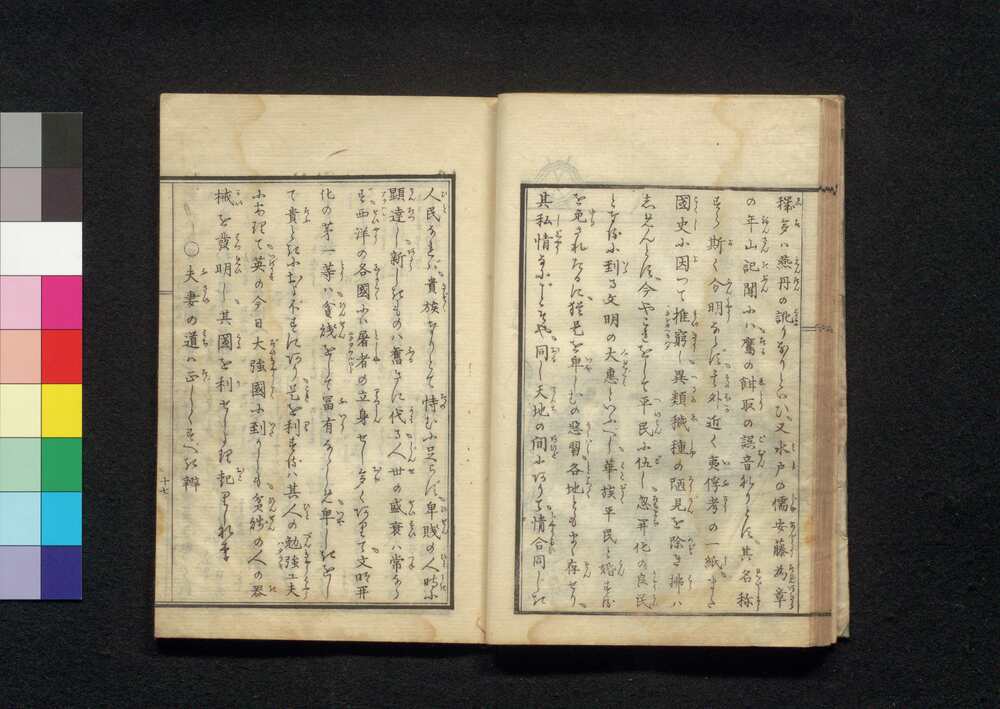 穢多ハ燕丹の訛りなりといひ又水戸の儒安藤為章
の年山記聞にハ鷹の餌取の誤音なりとす其名称
すら斯く分明ならず其外近く夷俘考の一紙
国史に因つて推窮し異類穢種の陋見を除き拂ハ
しめんとす今やこれをして平民に伍し忽开化の良民
となすに到る文明の大恵といふべし華族平民と婚する
を免されたるに猶是を卑しむの悪習各地とも少く存せり
其私情なんどぞや同し天地の间にありて情合同しき
人民なれバ貴族なりとて恃むに足らず卑賎の人時に
顕達し新しきものハ奮きに代る人世の盛衰ハ常なら
す西洋の各國にハ屠者の立身せし多くありて文明开
化の第一等ハ貧賎をして冨有ならしめ卑しきをし
て貴らしむるにあらずや是を利するハ其人の勉強工夫
にありて英の今日大強國に到りしも貧賎の人の器
械を發明し其國を利せしを記
〇夫妻の道ハ正しくすべき辨
十七